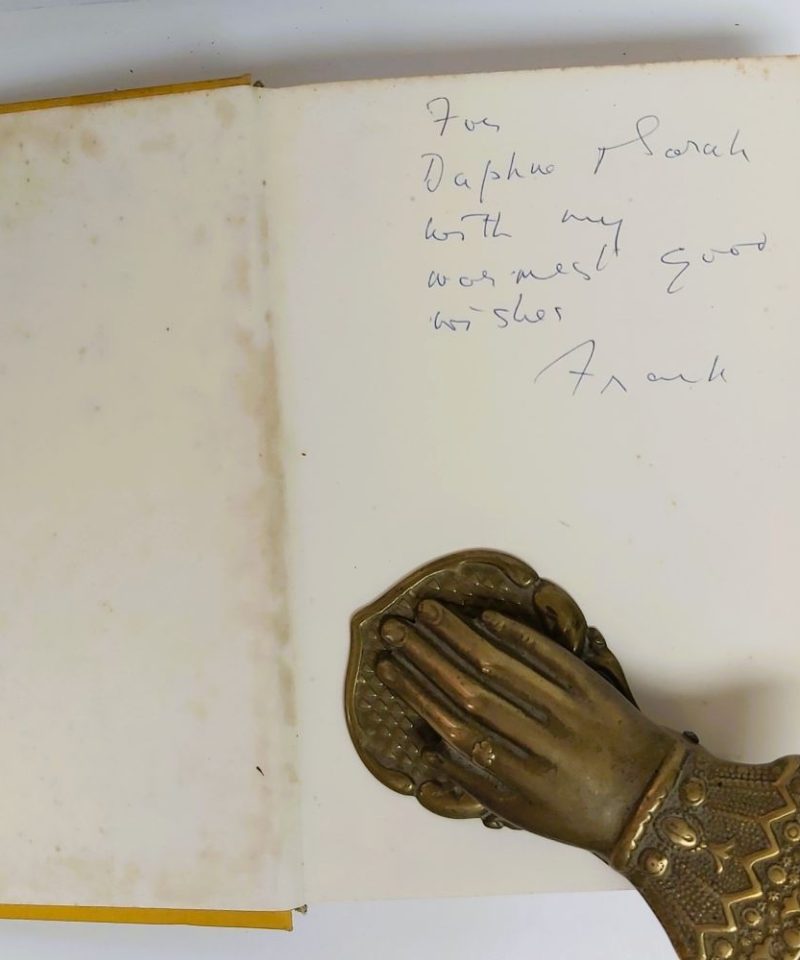 For
Daphne & Sarah
with my
warmest good
wishes
Frank